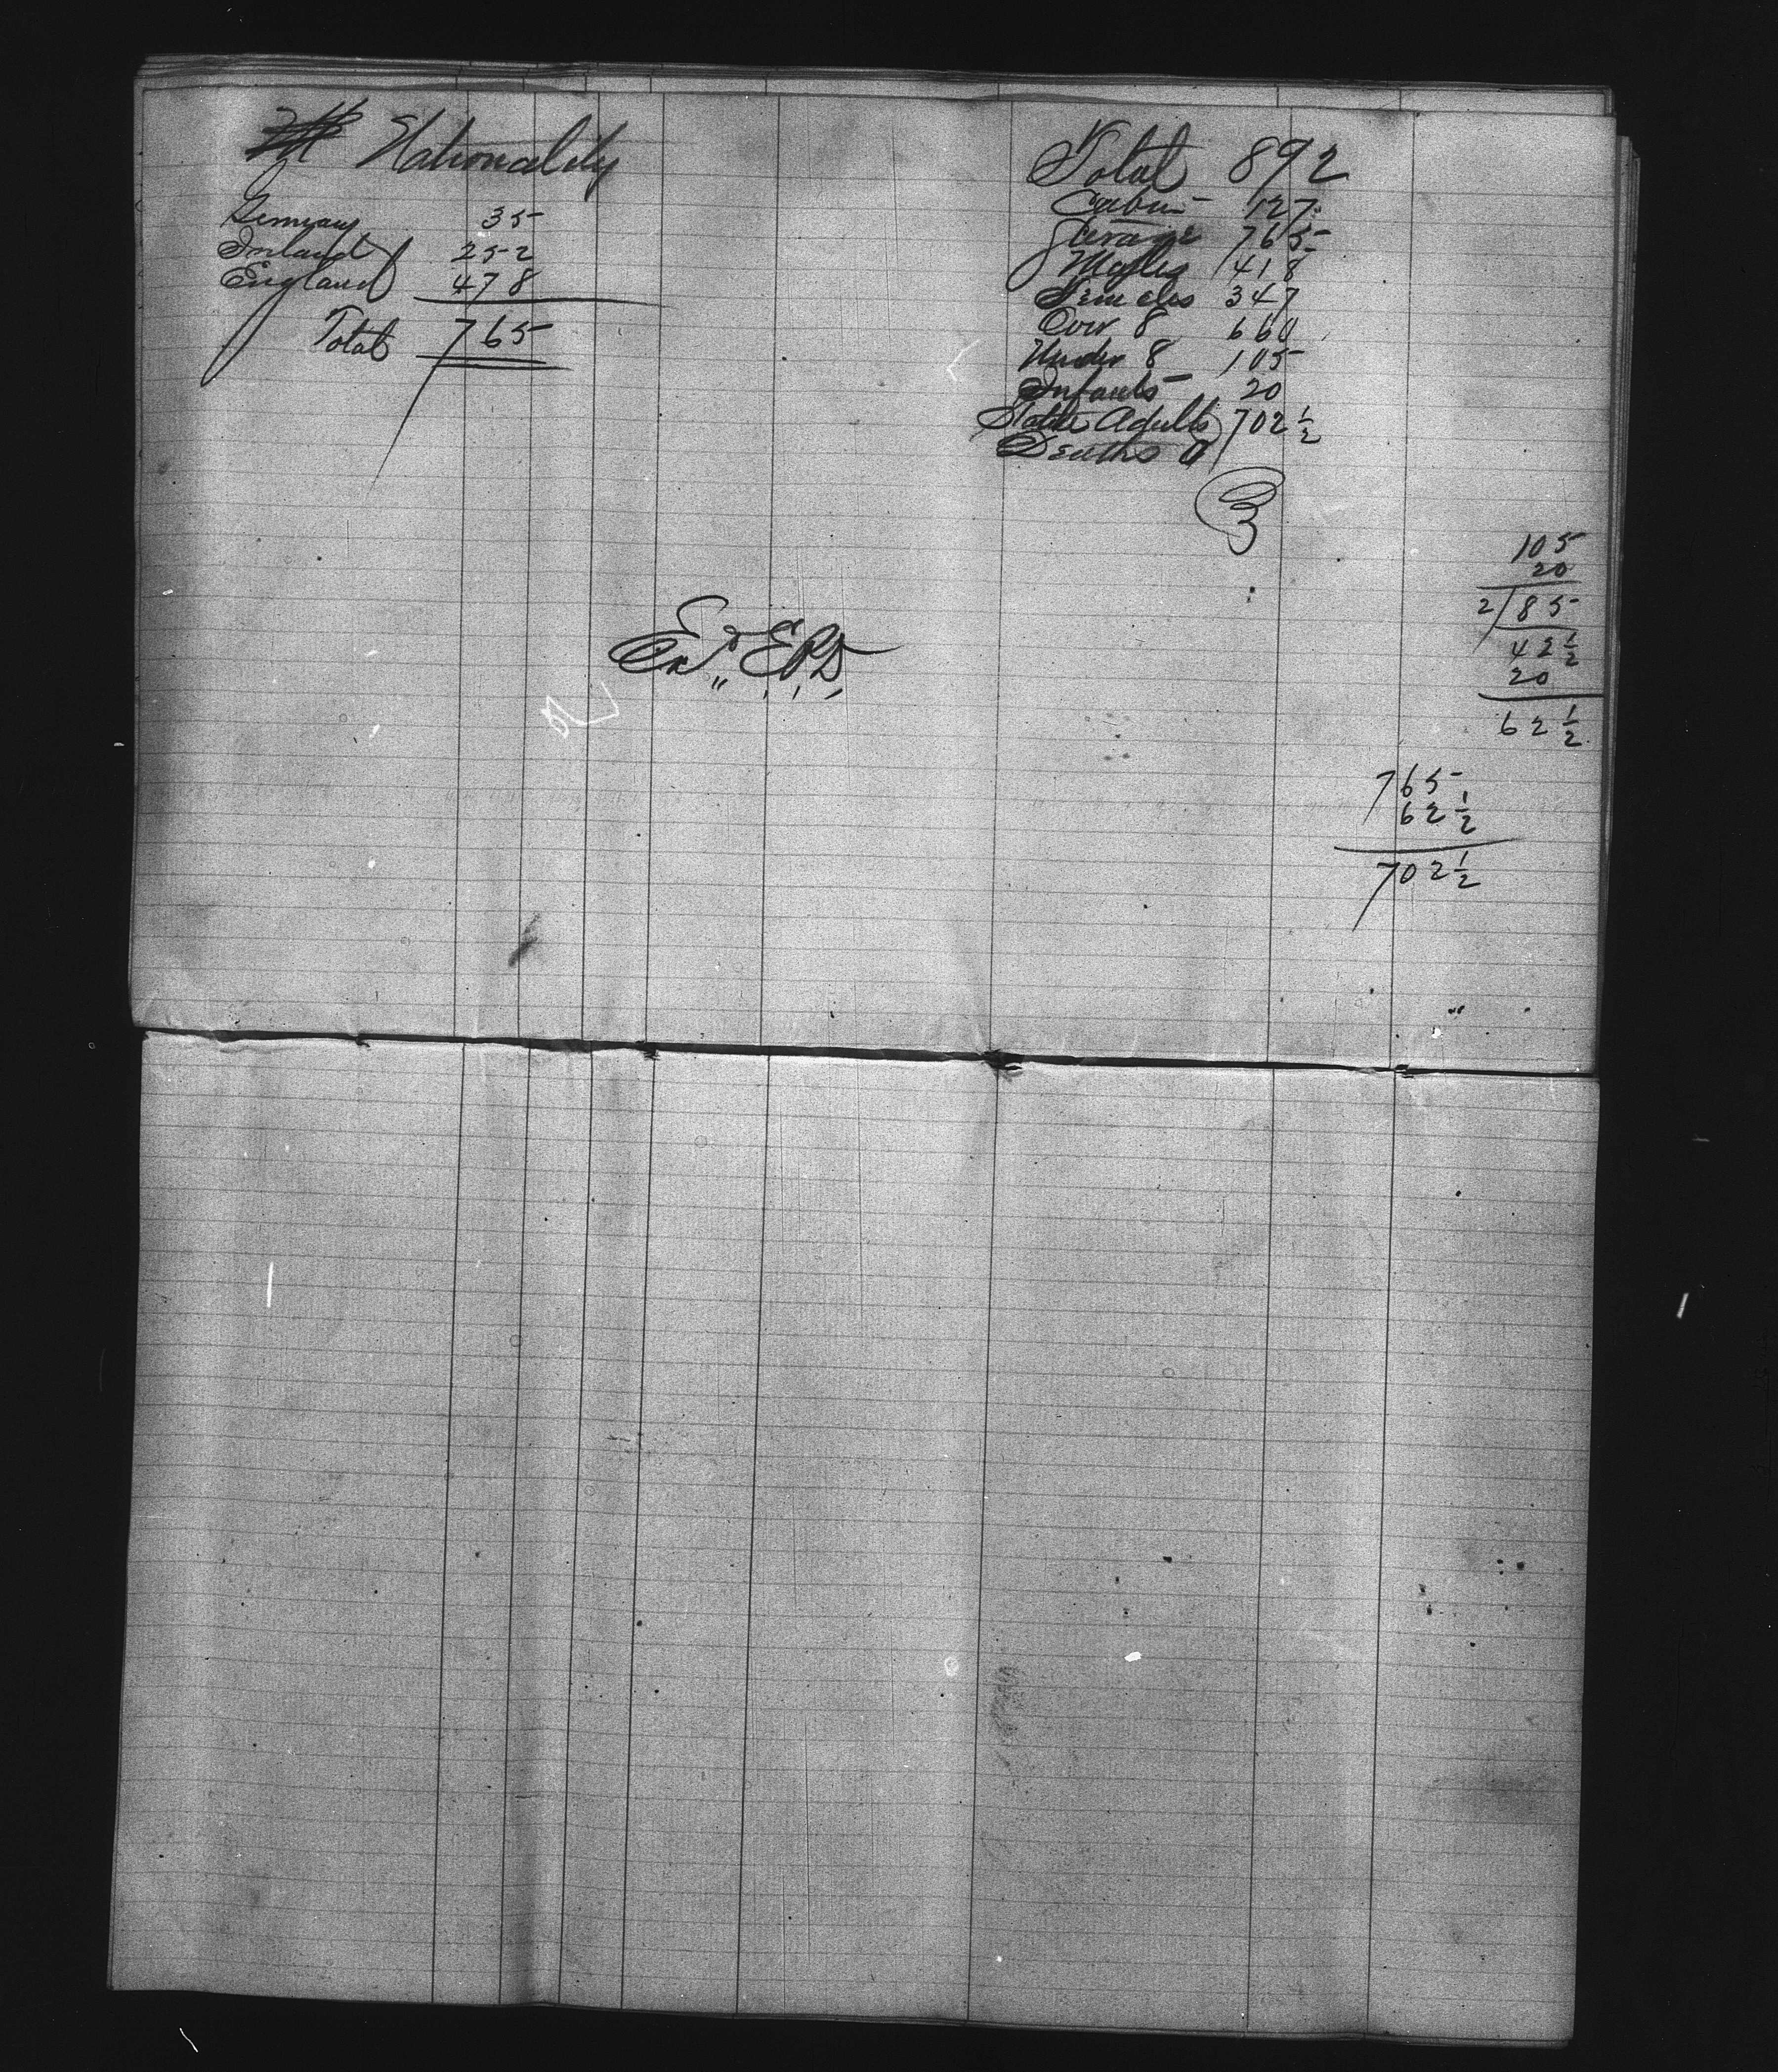 Nationality
Germany 35
Ireland 252
England 478
Total 765
Total 892
Cabin 127
Sterage 765
Males 418
Females 347
Over 8 660
Under 8 105
Infants 20
Statute Adults 702 1/2
Deaths 0
Exd. E.P.D.
105
20
2/85
42 1/2
20
62 1/2
765
62 1/2
702 1/2